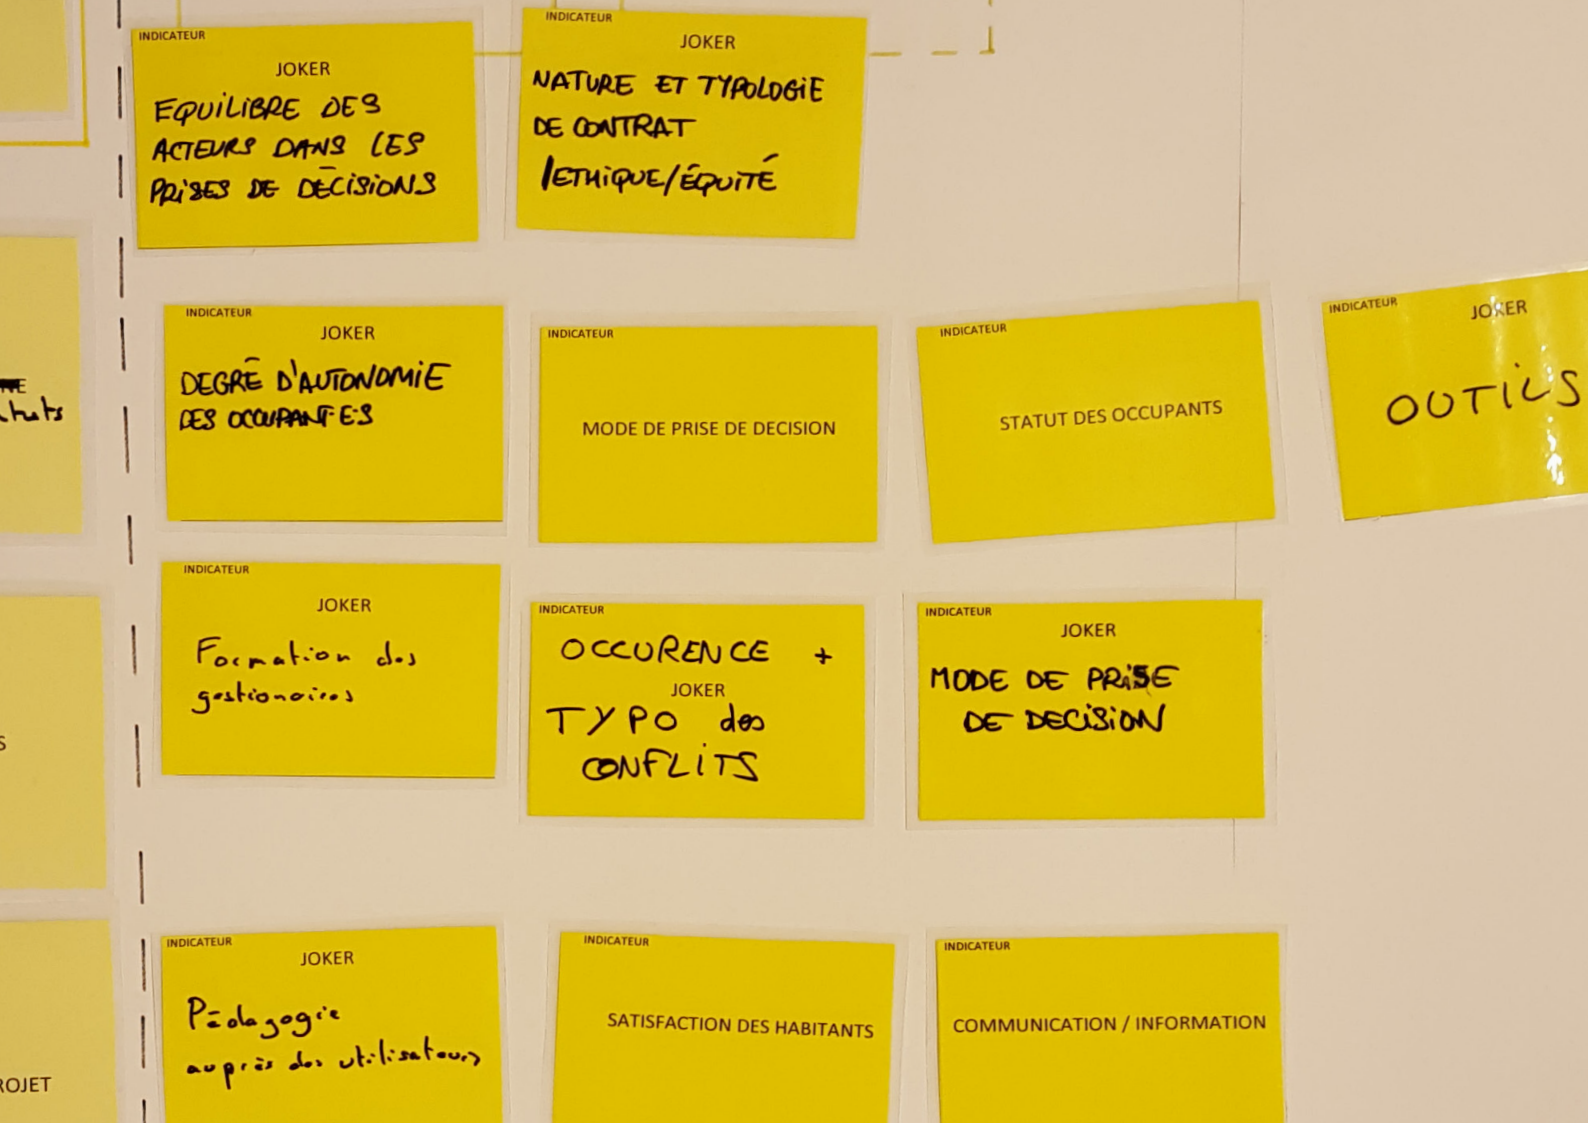 INDICATEUR
JOKER
EQUILIBRE DES
ACTEURS DANS LES
PRISES DE DÉCISIONS
INDICATEUR
JOKER
NATURE ET TYPOLOGIE
DE CONTRAT
/ETHIQUE/ÉQUITÉ
INDICATEUR
JOKER
DEGRÉ D'AUTONOMIE
DES OCCUPANT·E·S
INDICATEUR
MODE DE PRISE DE DECISION
INDICATEUR
STATUT DES OCCUPANTS
INDICATEUR
JOKER
OUTILS
INDICATEUR
JOKER
Formation des
gestionaires
INDICATEUR
OCCURENCE +
JOKER
TYPO des
CONFLITS
INDICATEUR
JOKER
MODE DE PRISE
DE DECISION
INDICATEUR
JOKER
Pédagogie
auprès des utilisateurs
INDICATEUR
SATISFACTION DES HABITANTS
INDICATEUR
COMMUNICATION / INFORMATION
S
ROJET